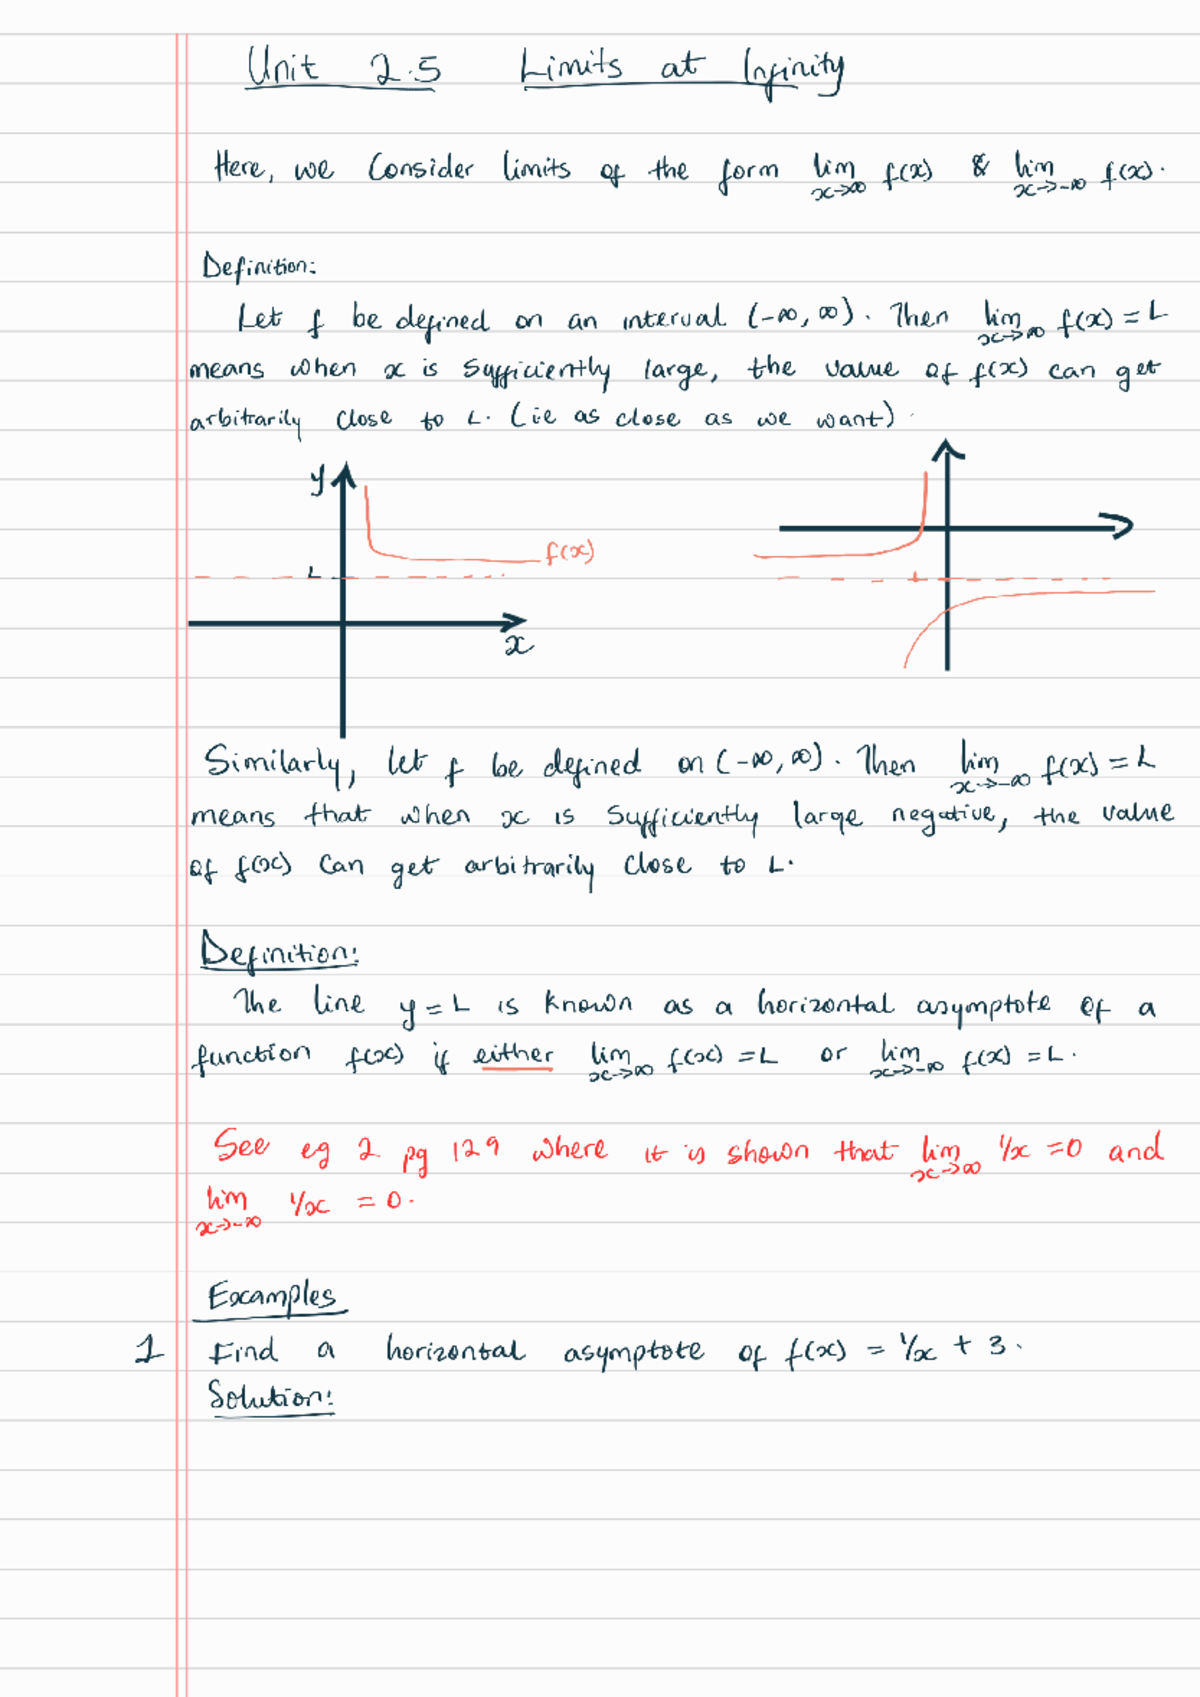 Unit 2.5 Limits at Infinity
Here, we Consider limits of the form lim x→∞ f(x) & lim x→-∞ f(x).
Definition:
Let f be defined on an interval (-∞, ∞). Then lim x→∞ f(x) = L
means when x is sufficiently large, the value of f(x) can get
arbitrarily close to L. (ie as close as we want).
y
f(x)
L
x
L
Similarly, let f be defined on (-∞, ∞). Then lim x→-∞ f(x) = L
means that when x is sufficiently large negative, the value
of f(x) can get arbitrarily close to L.
Definition:
The line y = L is known as a horizontal asymptote of a
function f(x) if either lim x→∞ f(x) = L or lim x→-∞ f(x) = L.
See eg 2 pg 129 where it is shown that lim x→∞ 1/x = 0 and
lim x→-∞ 1/x = 0.
Examples
1 Find a horizontal asymptote of f(x) = 1/x + 3.
Solution: